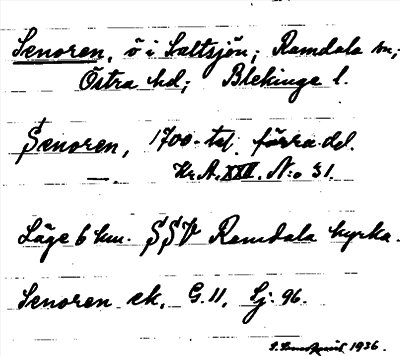 Senoren, ö i Saltsjön; Ramdala sn;
Östra hd; Blekinge l.
Senoren, 1700-tal. förra del.
Kr. A. XXII. N:o 31.
Läge 6 km. SSV Ramdala kyrka.
Senoren ek. G. 11, Sj. 96.
1936.